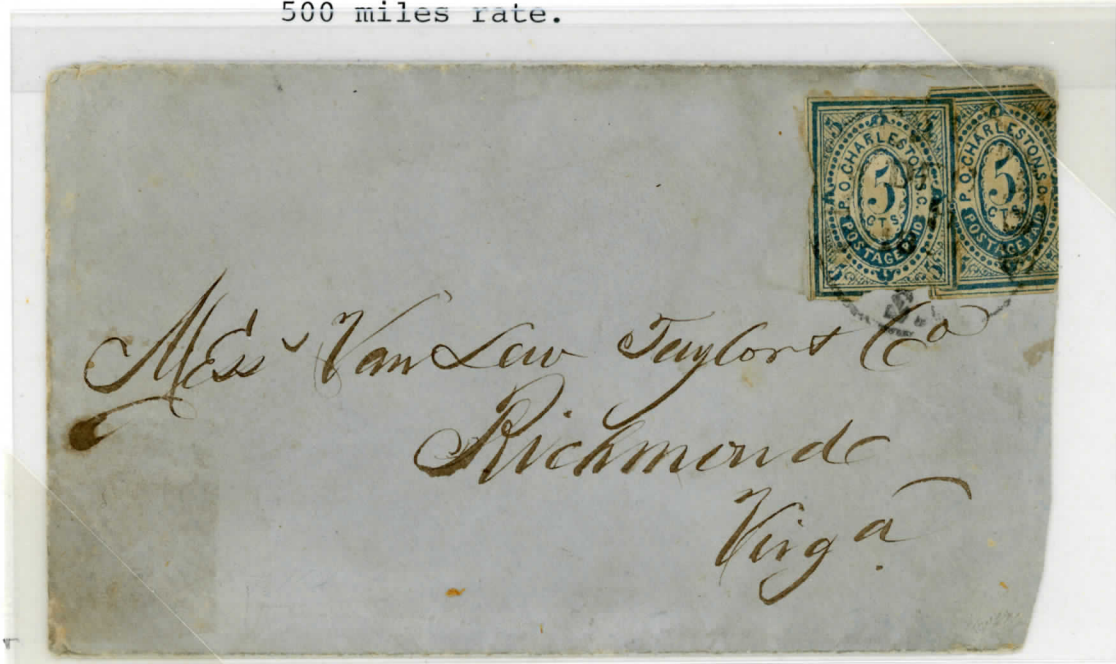 500 miles rate.
P.O. CHARLESTON. S.C.
5
CTS
POSTAGE PAID
P.O. CHARLESTON. S.C.
5
CTS
POSTAGE PAID
Mess Van Lew Taylor & Co
Richmond
Virga